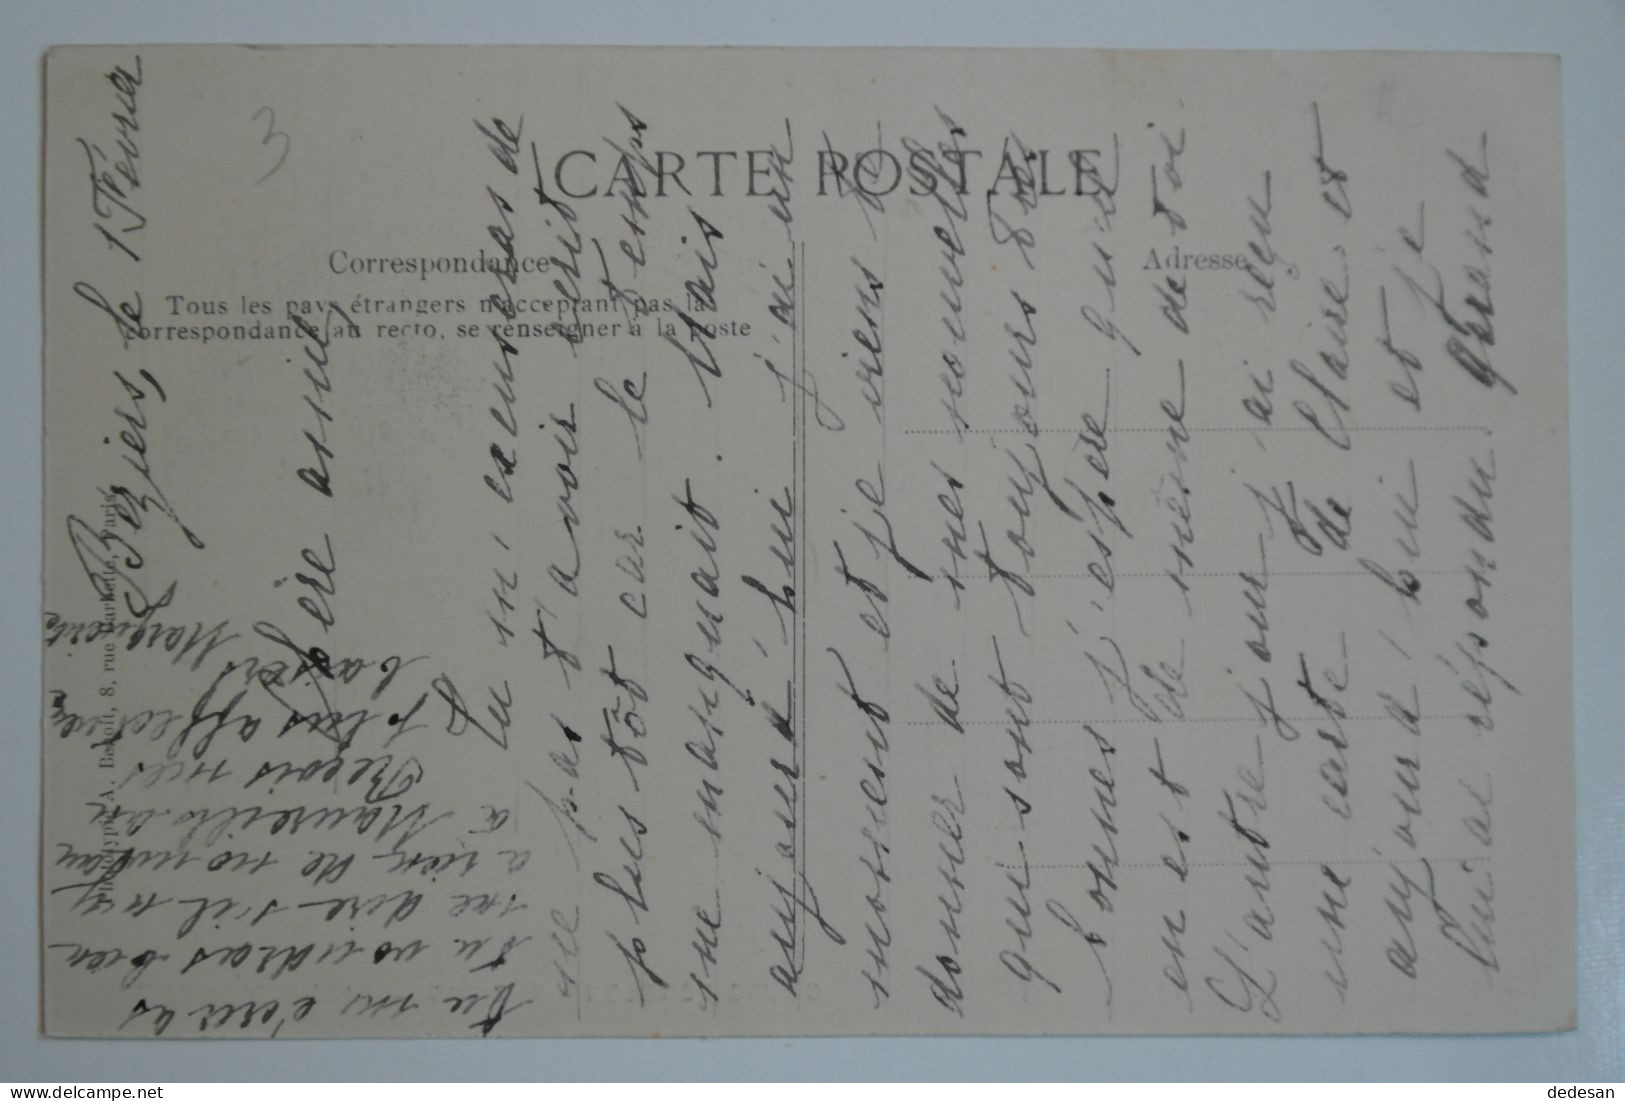 CARTE POSTALE
Correspondance
Adresse
Tous les pays étrangers n'acceptant pas la
correspondance au recto, se renseigner à la poste
Phototypie A. Benoit, 8, rue Paris
3
Béziers, le 1 Février
amie,
Tu m'excuseras de
ne pas t'avoir écrit
plus tôt car le temps
me manquait. Mais
aujourd'hui j'ai un
moment et je viens te
donner de mes nouvelles
qui sont toujours très
bonnes j'espère qu'il
en est de même de toi.
L'autre jour j'ai reçu
une carte de Claire et
aujourd'hui et je
lui ai répondu quand
Tu m'écriras
tu voudras bien
me dire s'il n'y
a rien de nouveau
à Maureilhan
Reçois mes
plus affectueux
baisers Marguerite
dedesan